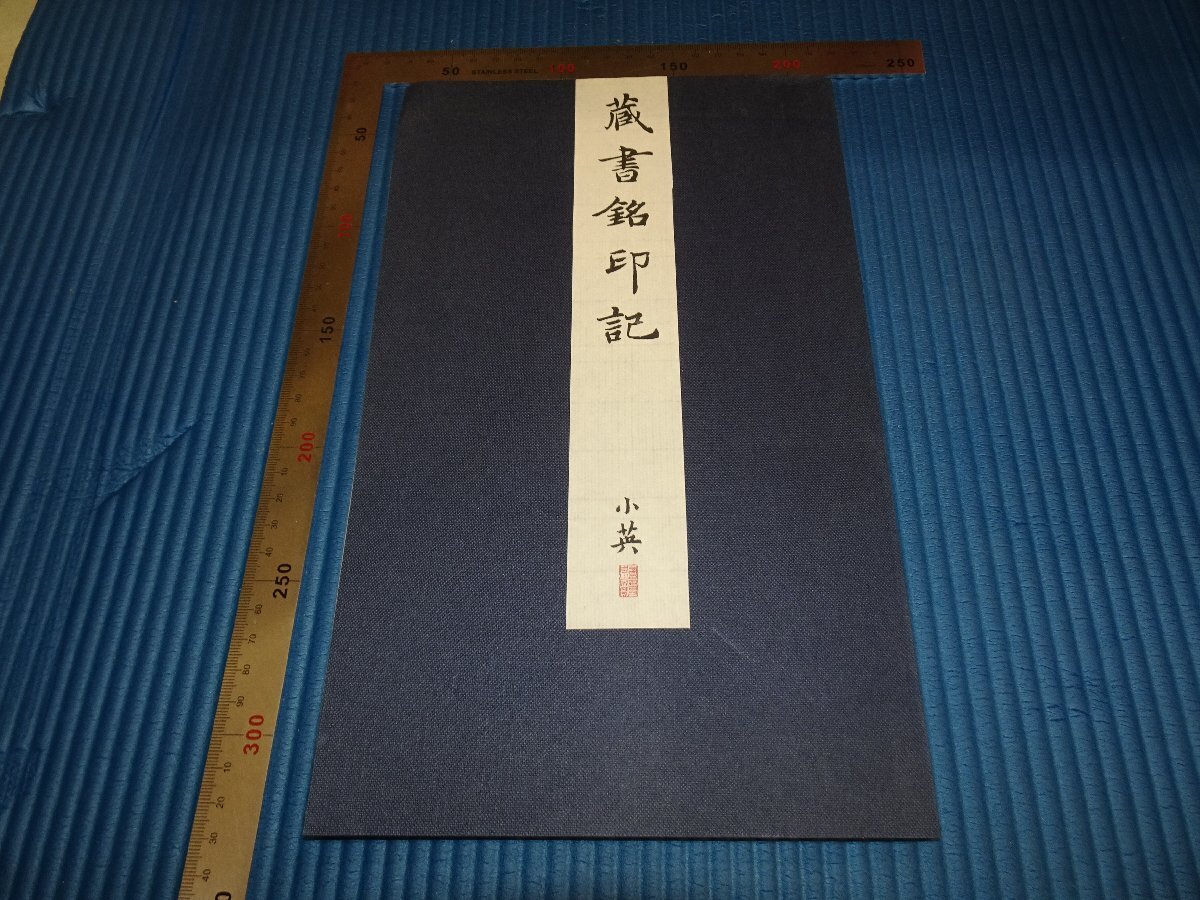 藏書銘印記
小英
50 STAINLESS STEEL 100 150 200 250
50
100
150
200
250
300